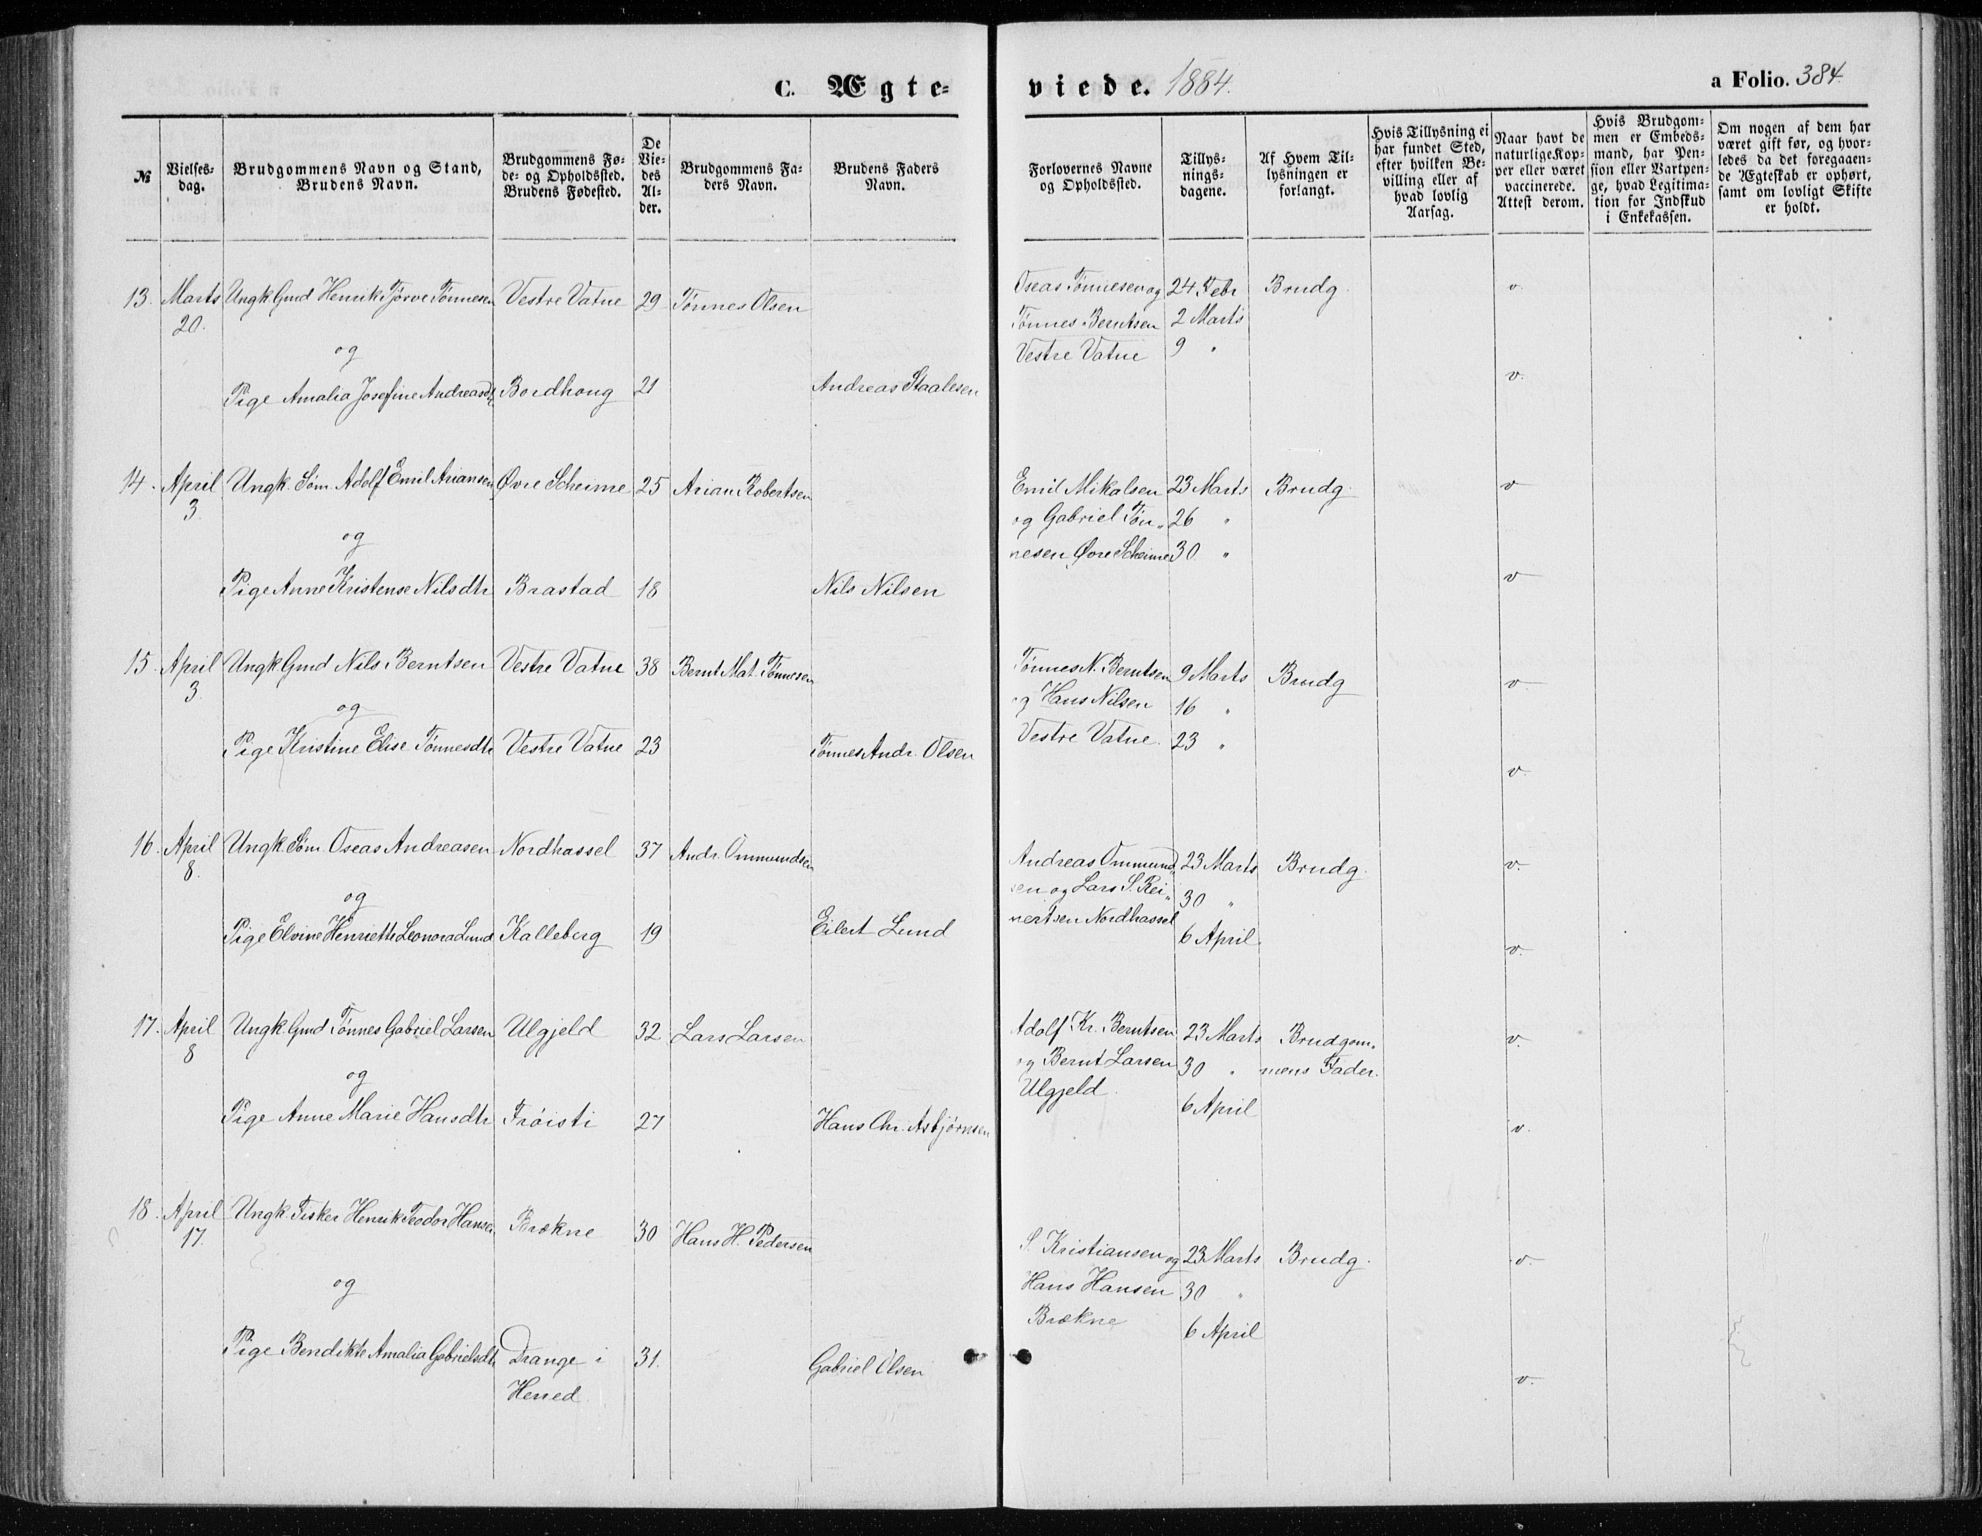 C. Ægte-
viede. 1884.
a Folio. 384.
№
Vielses-
dag.
Brudgommens Navn og Stand,
Brudens Navn.
Brudgommens Fø-
de- og Opholdssted.
Brudens Fødested.
De
Vie-
des
Al-
der.
Brudgommens Fa-
ders Navn.
Brudens Faders
Navn.
Forlovernes Navne
og Opholdssted.
Tillys-
nings-
dagene.
Af Hvem Til-
lysningen er
forlangt.
Hvis Tillysning ei
har fundet Sted,
efter hvilken Be-
villing eller af
hvad lovlig
Aarsag.
Naar havt de
naturlige Kop-
per eller været
vaccinerede.
Attest derom.
Hvis Brudgom-
men er Embeds-
mand, har Pen-
sion eller Vartpen-
ge, hvad Legitima-
tion for Indskud
i Enkekassen.
Om nogen af dem har
været gift før, og hvor-
ledes da det foregaaen-
de Ægteskab er ophørt,
samt om lovligt Skifte
er holdt.
13. Marts Ungk. Gmd Henrik Tjørve Tønnesen Vestre Vatne 29 Tønnes Olsen Oseas Tønnesen og 24 Febr Brudg. v.
20. Tønnes Berntsen 2 Marts
og Vestre Vatne 9 "
Pige Amalia Josefine Andreasdt Bordhoug 21 Andreas Staalesen v.
14. April Ungk. Søm. Adolf Emil Ariansen Øvre Scheime 25 Arian Robertsen Emil Mikalsen 23 Marts Brudg. v
3. og Gabriel Tøn- 26 "
og nesen Øvre Scheime 30 "
Pige Anne Kristense Nilsdtr Brastad 18 Nils Nilsen v
15. April Ungk Gmd Nils Berntsen Vestre Vatne 38 Bernt Mat. Tønnesen Tønnes N. Berntsen 9 Marts Brudg v.
3 og Hans Nilsen 16 "
og Vestre Vatne. 23 "
Pige Kristine Elise Tønnesdtr Vestre Vatne 23 Tønnes Andr. Olsen v.
16. April Ungk. Søm. Oseas Andreasen Nordhassel 37 Andr. Ommundsen Andreas Ommund- 23 Marts Brudg. v.
8. sen og Lars S. Rei- 30 "
og nertsen Nordhassel 6 April.
Pige Elvine Henriette Leonora Lund Kalleberg 19 Eilert Lund v.
17. April Ungk. Gmd Tønnes Gabriel Larsen Ulgjeld 32 Lars Larsen Adolf Kr. Berntsen 23 Marts Brudgom- v.
8 og Bernt Larsen 30 " mens Fader.
og Ulgjeld. 6 April
Pige Anne Marie Hansdtr Frøisti 27 Hans Chr. Asbjørnsen v.
18. April Ungk. Fisker Henrik Teodor Hansen Brækne 30 Hans H. Pedersen S. Kristiansen og 23 Marts Brudg. v.
17. Hans Hansen 30 "
og Brækne 6 April
Pige Bendikte Amalia Gabrielsdtr Drange i 31. Gabriel Olsen v.
Herred.